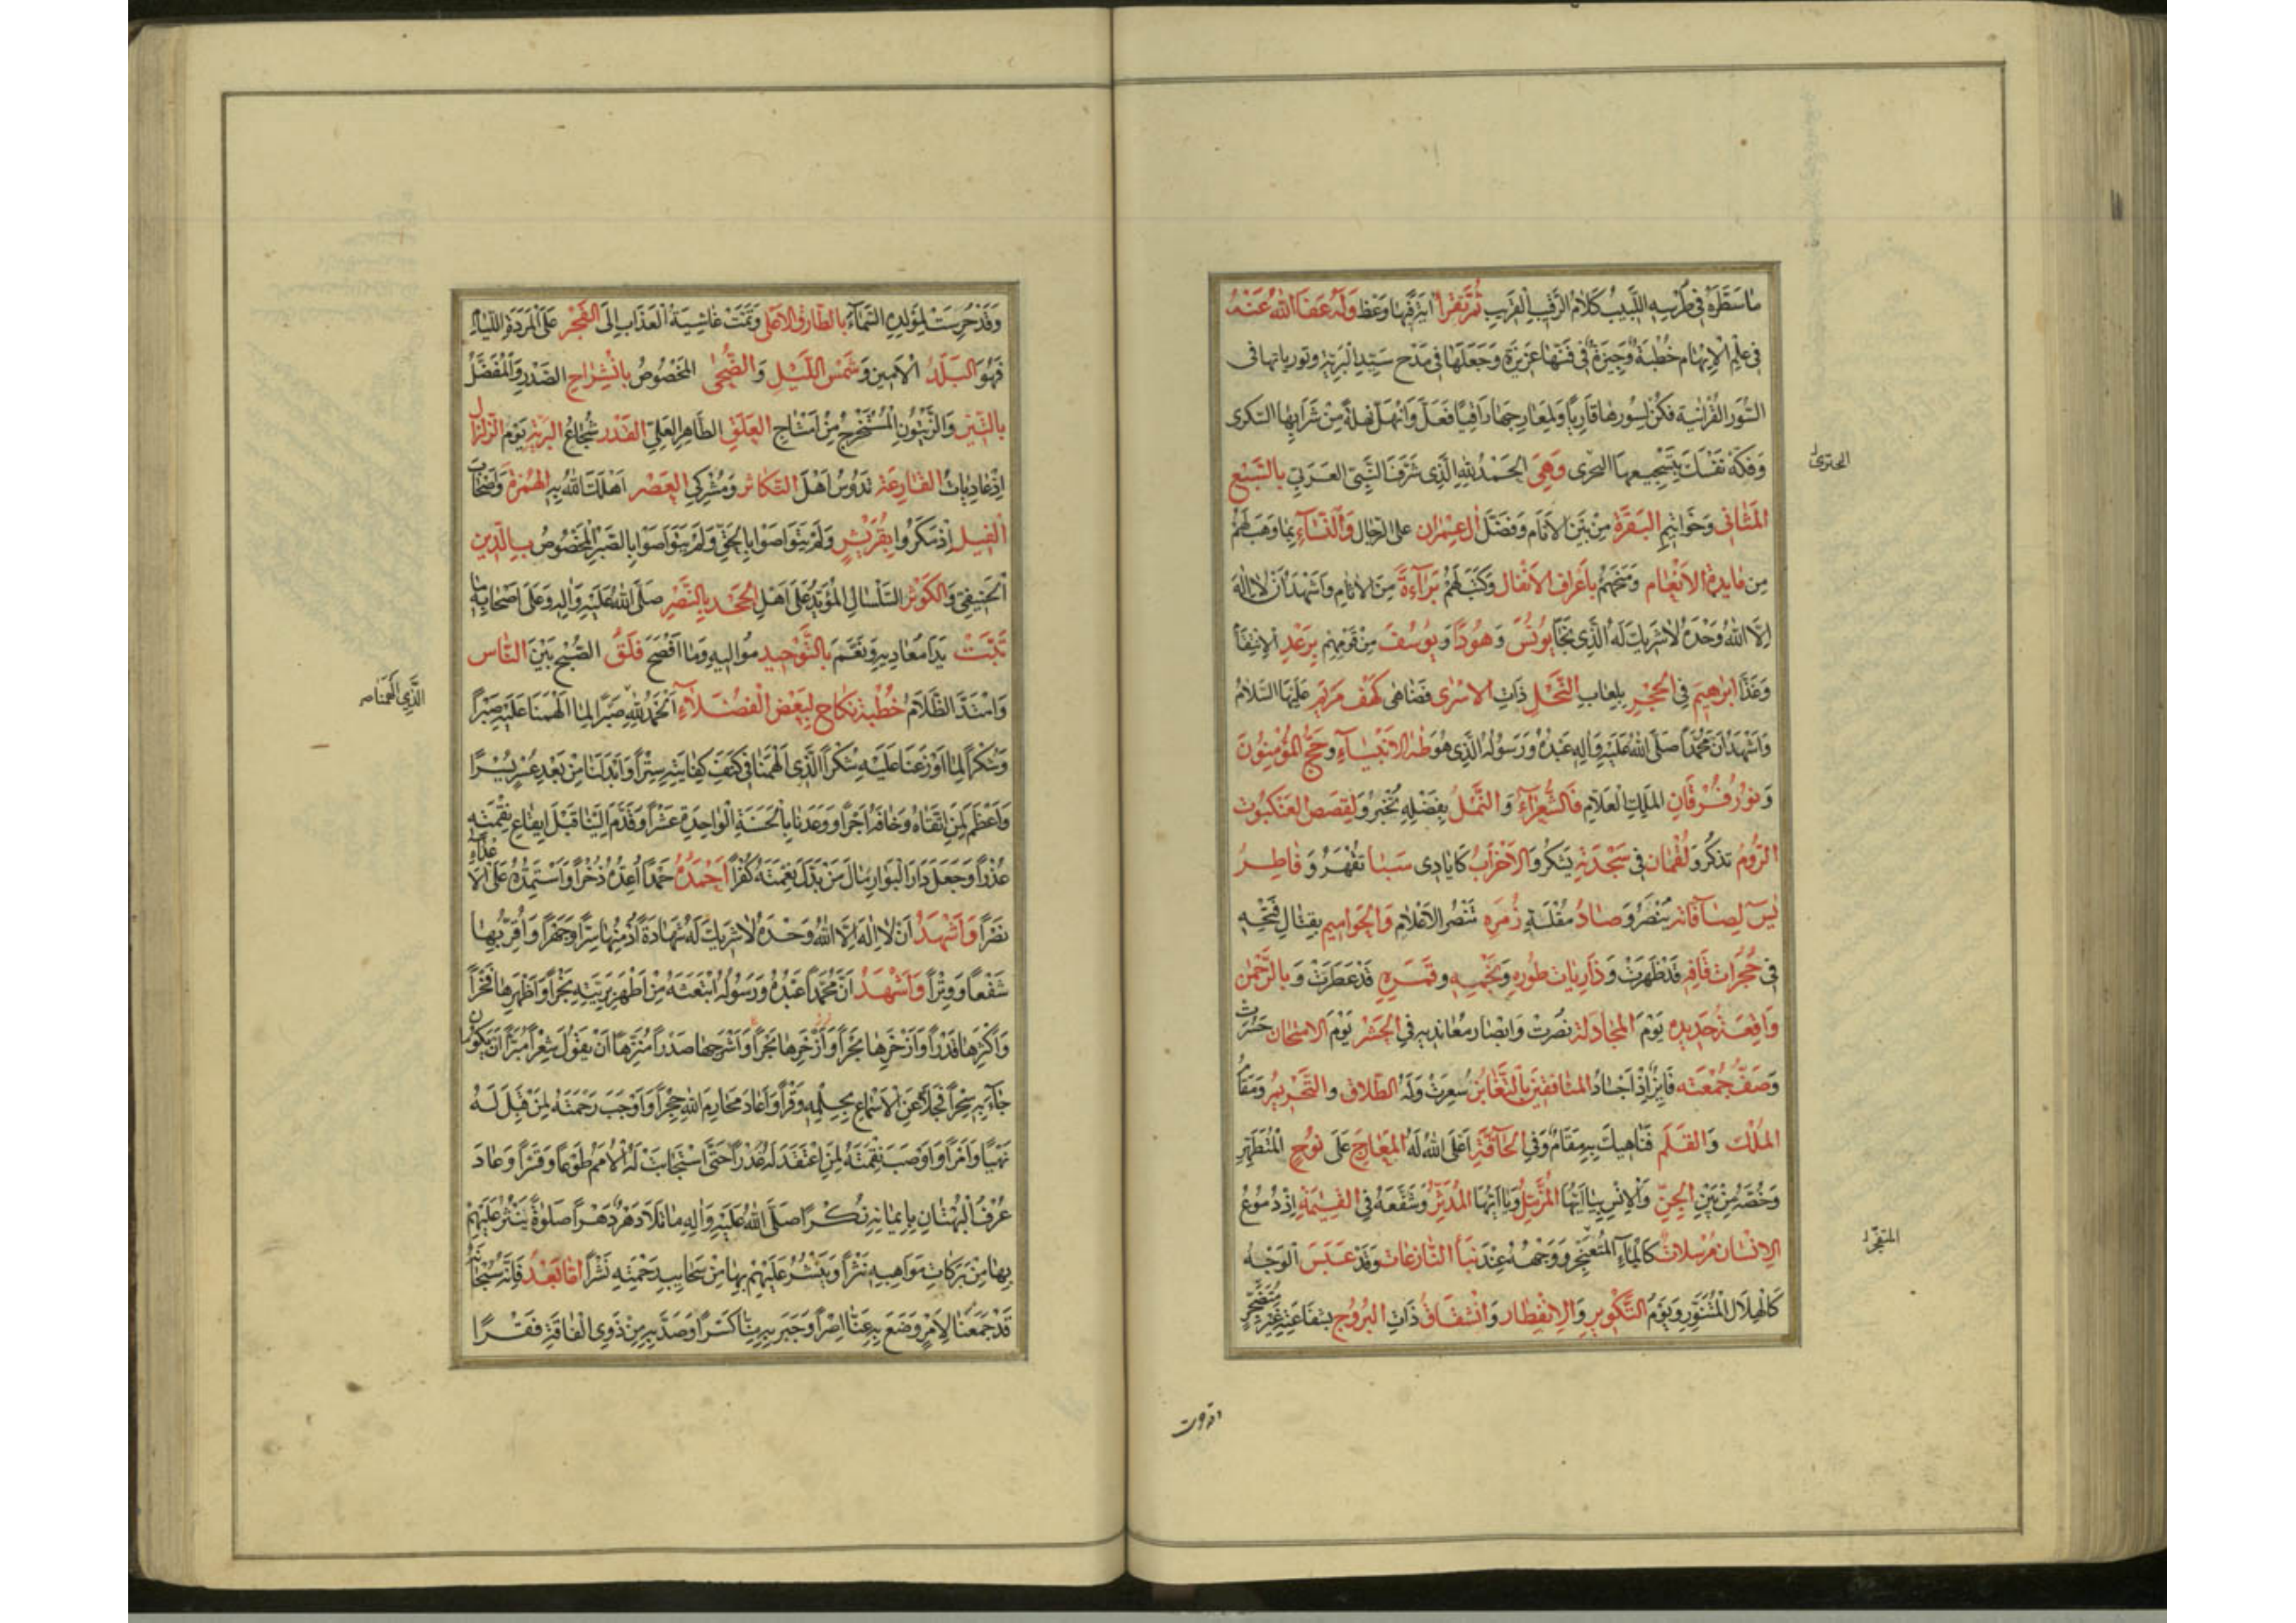 ما سطره في طرسه اللبيب كلام الرقيب القريب ثم تقرأ وعظ وله عفا الله عنه
في علم الإيهام خطبة وجيزة في فنها عزيزة وجعلها في مدح سيد البرية وتورياتها في
السور القرآنية فكن لسورها قاريا ولمعارجها راقيا فعل وانهل نهلة من شرابها السكري
وفكه نفسك بتسجيعها السحري وهي الحمد لله الذي شرف النبي العربي بالسبع
المثاني وخواتيم البقرة من بين الأنام وفضل آل عمران على الرجال والنساء بما وهب لهم
من مائدة الأنعام ومنحهم بأعراف الأنفال وكتب لهم براءة من الآثام وأشهد أن لا إله
إلا الله وحده لا شريك له الذي نجا يونس وهودا ويوسف من قومهم برعد الانتقام
وغذا إبرهيم في الحجر بلعاب النحل ذات الإسرى فضاهى كهف مريم عليها السلام
وأشهد أن محمدا صلى الله عليه وآله عبده ورسوله الذي هو طه الأنبياء وحج المؤمنون
ونور فرقان الملك العلام فالشعراء والنمل بفضله تخبر ولقصص العنكبوت
الروم تذكر ولقمان في سجدته يشكر والأحزاب كأيادي سبا تقهر وفاطر
يس لصافاته ينصر وصاد مقلة زمره تنصر الأعلام والحواميم بقتال فتحه
في حجرات قافه قد ظهرت وذاريات طوره ونجمه وقمره قد عطرت وبالرحمن
واقعة حديده يوم المجادلة نصرت وأبصار معانديه في الحشر يوم الامتحان حسرت
وصف جمعته فائز إذ أجساد المنافقين بالتغابن سعرت وله الطلاق والتحريم ومقام
الملك والقلم فناهيك به مقام وفي الحاقة أعلى الله له المعارج على نوح المتطهر
وخصه من بين الجن والإنس بيا أيها المزمل ويا أيها المدثر وشفعه في القيمة إذ دموع
الإنسان مرسلات كالماء المثعنجر ووجهه عند نبأ النازعات وقد عبس الوجه
كالهلال المتنور ويوم التكوير والانفطار وانشقاق ذات البروج بشفاعته غير متضجر
المتفجر
وقد حرست لمولده السماء بالطارق الأعلى وتمت غاشية العذاب إلى الفجر على المردة اللئام
فهو البلد الأمين وشمس الليل والضحى المخصوص بانشراح الصدر والمفضل
بالتين والزيتون المستخرج من أمشاج العلق الطاهر العلي القدر شجاع البرية يوم الزلزال
إذ عاديات القارعة تدوس أهل التكاثر ومشركي العصر أهلك الله به الهمزة وأصحاب
الفيل إذ مكروا بقريش ولم يتواصوا بالحق ولم يتواصوا بالصبر المخصوص بالدين
الحنيفي والكوثر السلسال المؤيد على أهل الجحد بالنصر صلى الله عليه وآله وعلى أصحابه ما
تبت يدا معاديه ونعم بالتوحيد مواليه وما أفصح فلق الصبح بين الناس
وامتد الظلام خطبة نكاح لبعض الفضلاء الحمد لله صبرا لما ألهمنا عليه صبرا
وشكرا لما أوزعنا عليه شكرا الذي ألهمنا في كنف كفايته سترا وأبدلنا من بعد عسر يسرا
وأعظم لمن اتقاه وخافه أجرا ووعدنا بالحسنة الواحدة عشرا وقدم إلينا قبل إيقاع نقمته
عذرا وجعل دار البوار منال من بدل نعمته كفرا أحمده حمدا أعده ذخرا وأستمده على أعدائه
نصرا وأشهد أن لا إله إلا الله وحده لا شريك له شهادة سرا وجهرا وأقر بها
شفعا ووترا وأشهد أن محمدا عبده ورسوله ابتعثه من أطهر بريته نجرا وأظهرها فخرا
وأكثرها قدرا وأزخرها بحرا وأشرحها صدرا منزها أن يقول شعرا مبرأ أن يكون ما
جاء به سحرا فجلا عن الأسماع بحلمه وقرا وأعاد محارم الله حجرا وأوجب رحمته لمن قبل له
نهيا وأمرا وأوصب نقمته لمن اعتقد له غدرا حتى استجابت له الأمم طوعا وقسرا وعاد
عرف البهتان بإيمانه نكرا صلى الله عليه وآله ما تلا دهر دهرا صلوة ينثر عليهم
بها من بركات مواهبه نثرا وينشر عليهم بها من سحائب رحمته نشرا أما بعد فإنه سبحانه
قد جمعنا لأمر وضع به عنا إصرا وجبر به منا كسرا وصد به من ذوي الفاقة فقرا